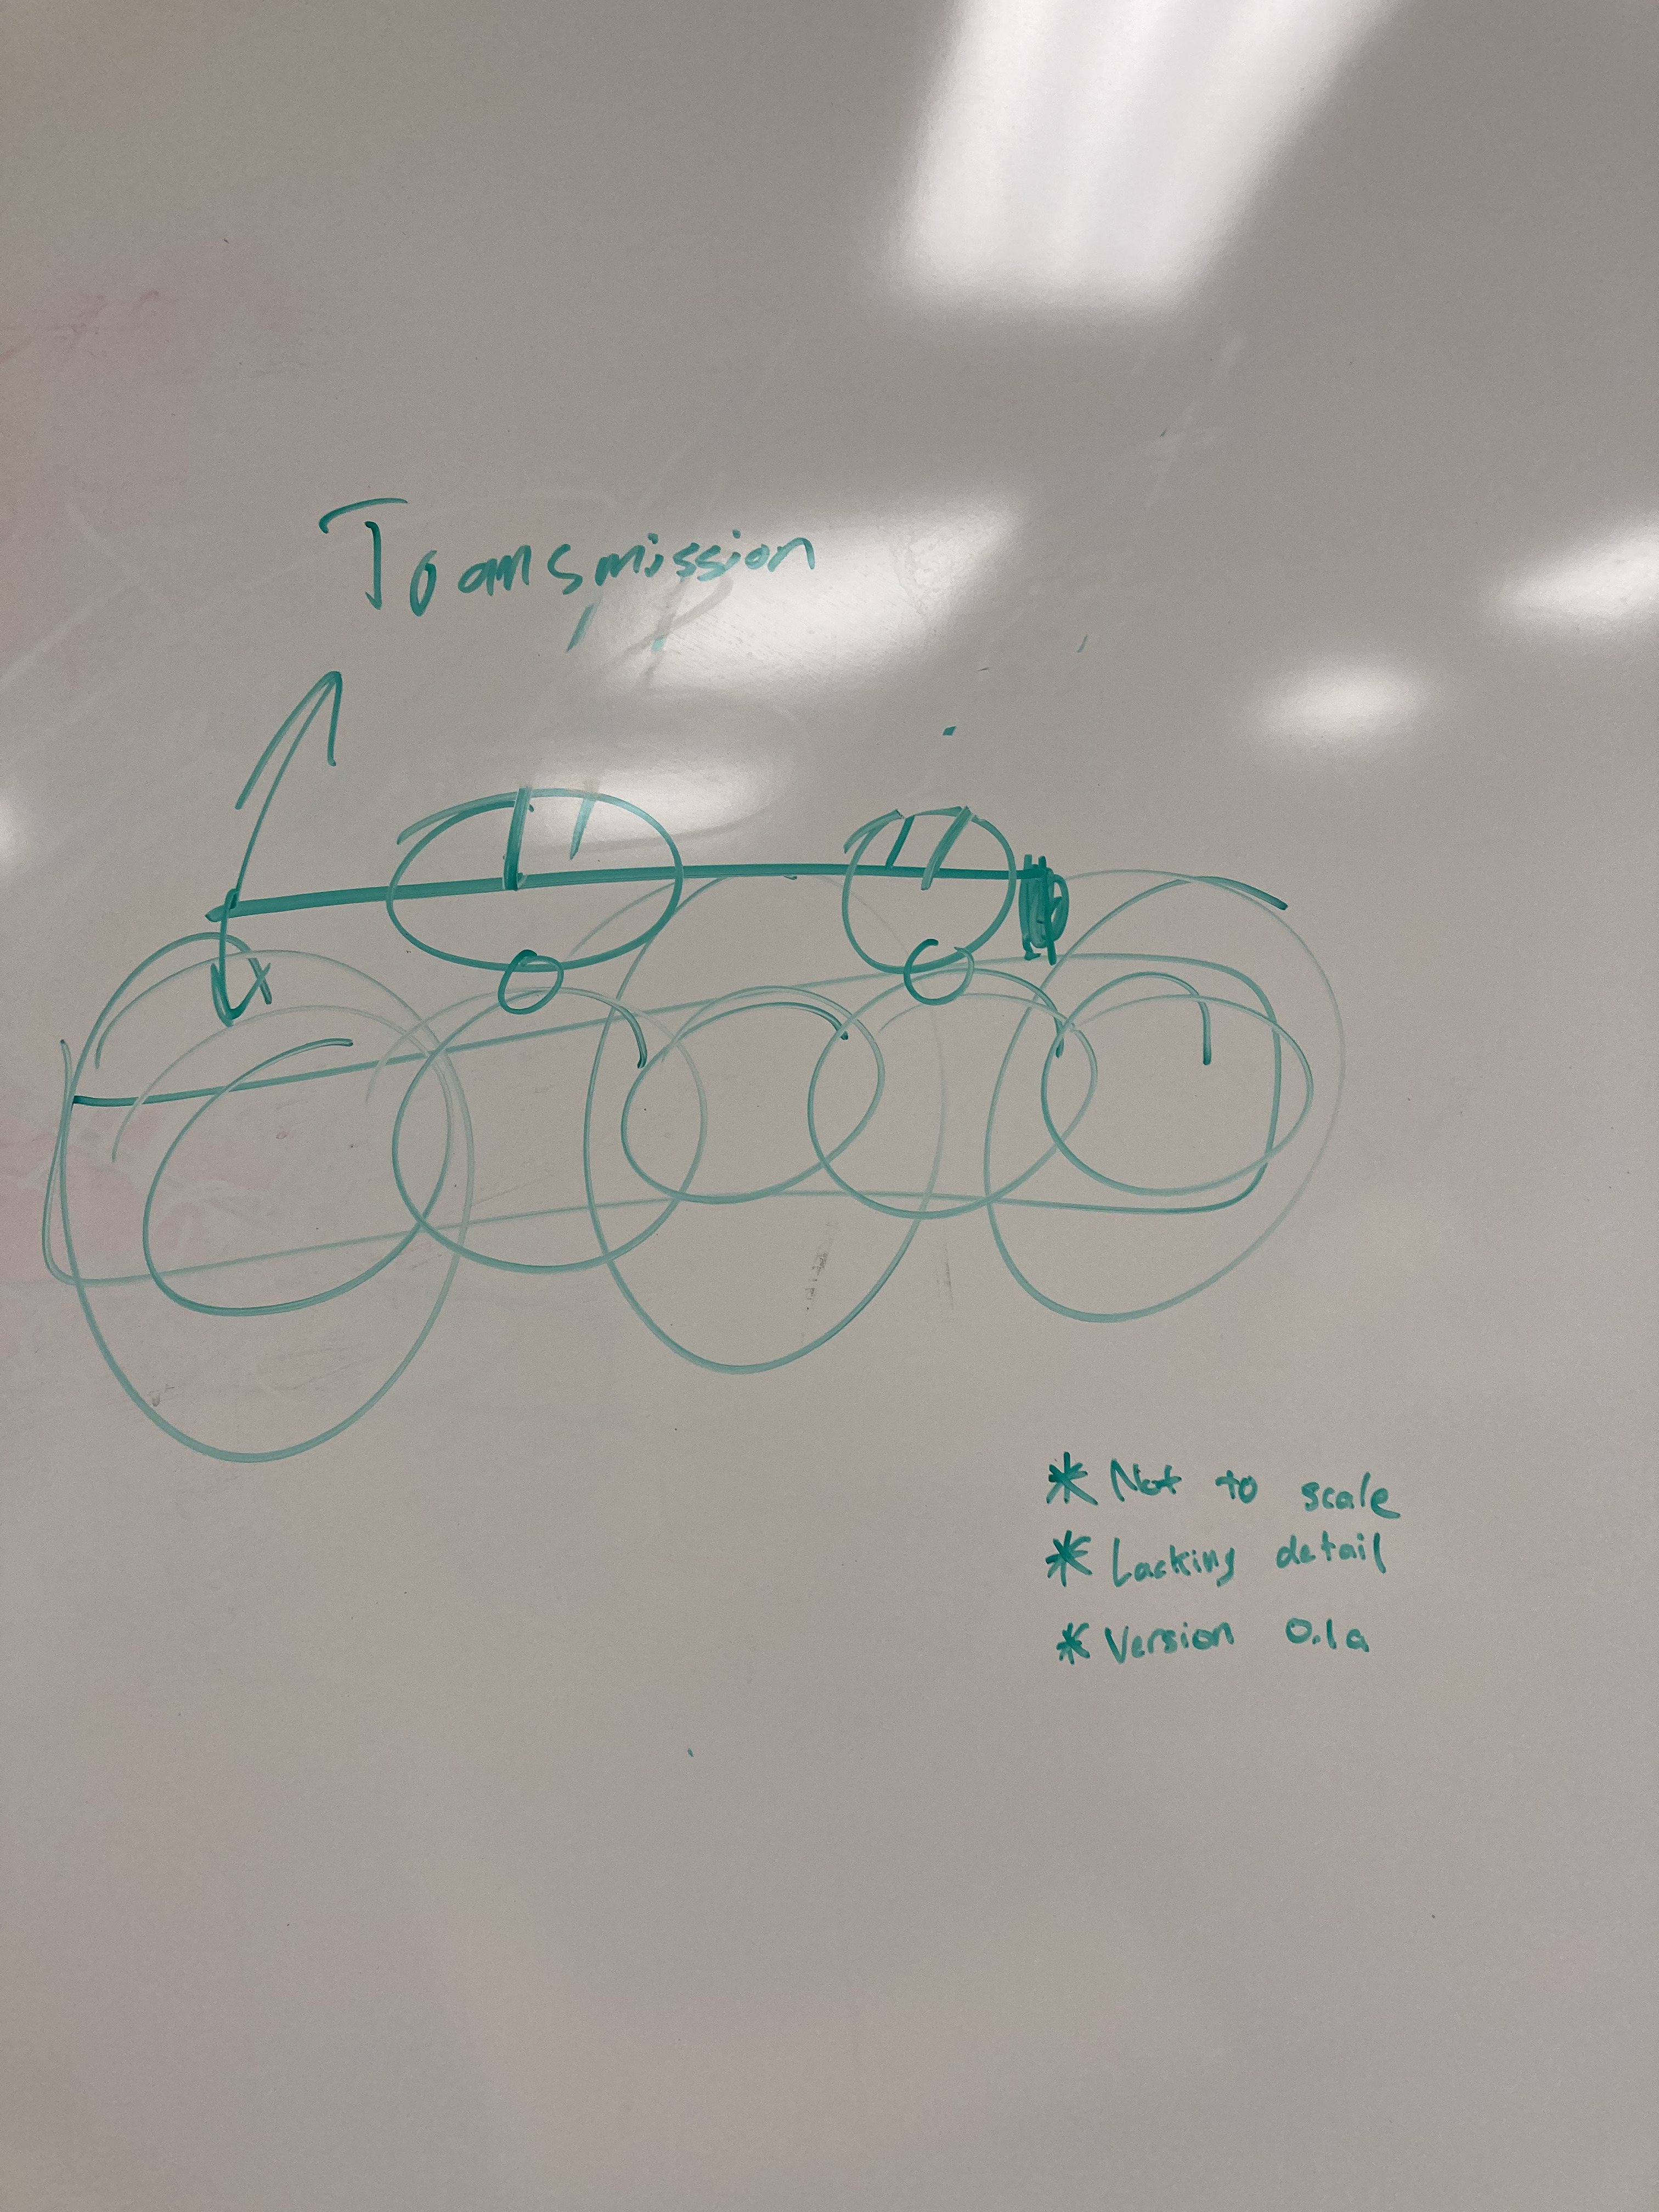 Transmission
* Not to scale
* Lacking detail
* Version 0.1a